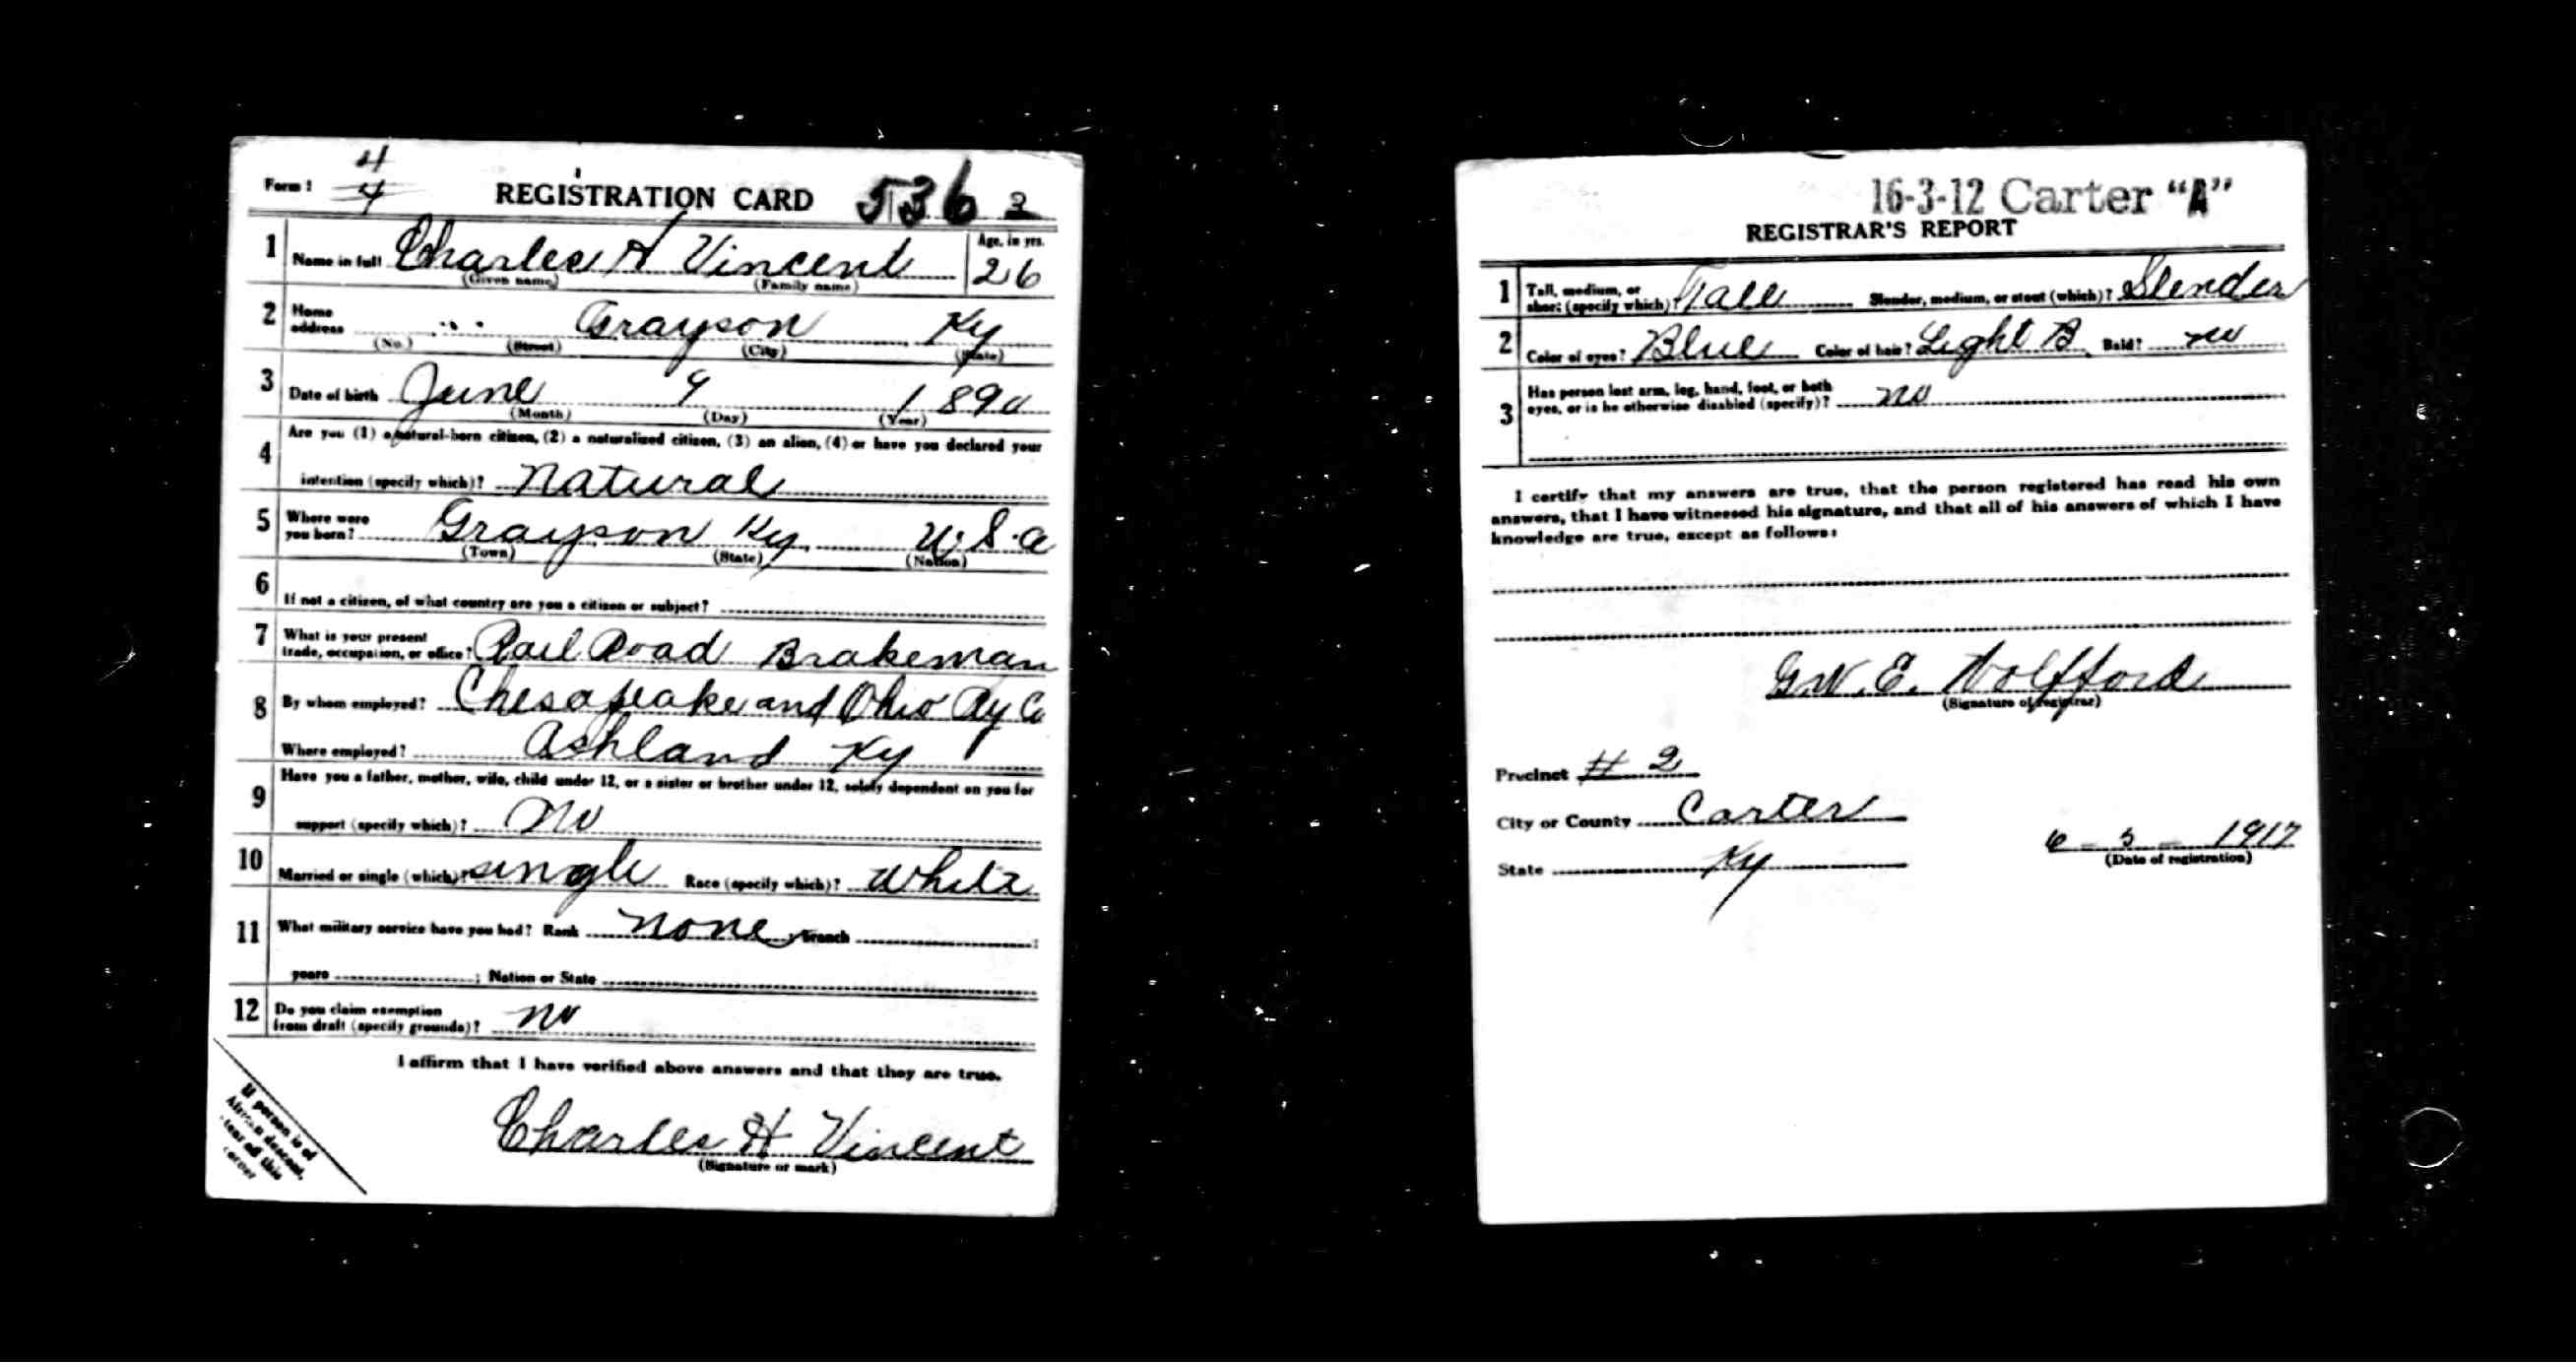 4
Form 1 4 REGISTRATION CARD 536 2
1 Name in full Charles H Vincent Age, in yrs. 26
(Given name) (Family name)
2 Home address Grayson Ky
(No.) (Street) (City) (State)
3 Date of birth June 9 1890
(Month) (Day) (Year)
4 Are you (1) a natural-born citizen, (2) a naturalized citizen, (3) an alien, (4) or have you declared your
intention (specify which)? Natural
5 Where were you born? Grayson Ky. U.S.a
(Town) (State) (Nation)
6 If not a citizen, of what country are you a citizen or subject?
7 What is your present trade, occupation, or office? Rail Road Brakeman
8 By whom employed? Chesapeake and Ohio Ry Co
Where employed? Ashland Ky
9 Have you a father, mother, wife, child under 12, or a sister or brother under 12, solely dependent on you for
support (specify which)? No
10 Married or single (which)? single Race (specify which)? White
11 What military service have you had? Rank none branch ;
years ; Nation or State
12 Do you claim exemption from draft (specify grounds)? no
I affirm that I have verified above answers and that they are true.
Charles H Vincent
(Signature or mark)
If person is of
African descent,
tear off this
corner
16-3-12 Carter "A"
REGISTRAR'S REPORT
1 Tall, medium, or short (specify which)? Tall Slender, medium, or stout (which)? Slender
2 Color of eyes? Blue Color of hair? Light B Bald? no
3 Has person lost arm, leg, hand, foot, or both
eyes, or is he otherwise disabled (specify)? no
I certify that my answers are true, that the person registered has read his own
answers, that I have witnessed his signature, and that all of his answers of which I have
knowledge are true, except as follows:
G.W.E. Wolfford
(Signature of registrar)
Precinct # 2
City or County Carter
State Ky
6 - 5 - 1917
(Date of registration)